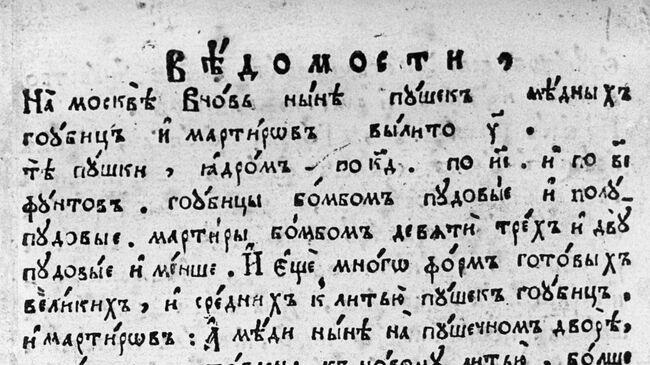 ВѢ́ДОМОСТИ,
На̀ москвѣ̀ вновь ны́нѣ пу́шекъ мѣ́дныхъ
гоубицъ и҆ марти́ровъ вы́лито у҃ .
тѣ̀ пу́шки, ꙗ҆дро́мъ по к҃д. по и҃і. и҆ по в҃і
фу́нтовъ. гоубицы бо́мбомъ пудовы́е и҆ полу-
пудовые. марти́ры бо́мбомъ девятѝ тре́хъ и҆ двꙋ
пудовы́е и҆ ме́нше. И҆ е҆щѐ мно́гѡ фо́рмъ гото́выхъ
вели́кихъ, и҆ сре́днихъ к̾ литью̀ пу́шекъ гоубицъ,
и҆ марти́ровъ : А҆ мѣ́ди ны́нѣ на̀ пу́шечномъ дворѣ̀,
къ но́вому литью̀, бо́лше